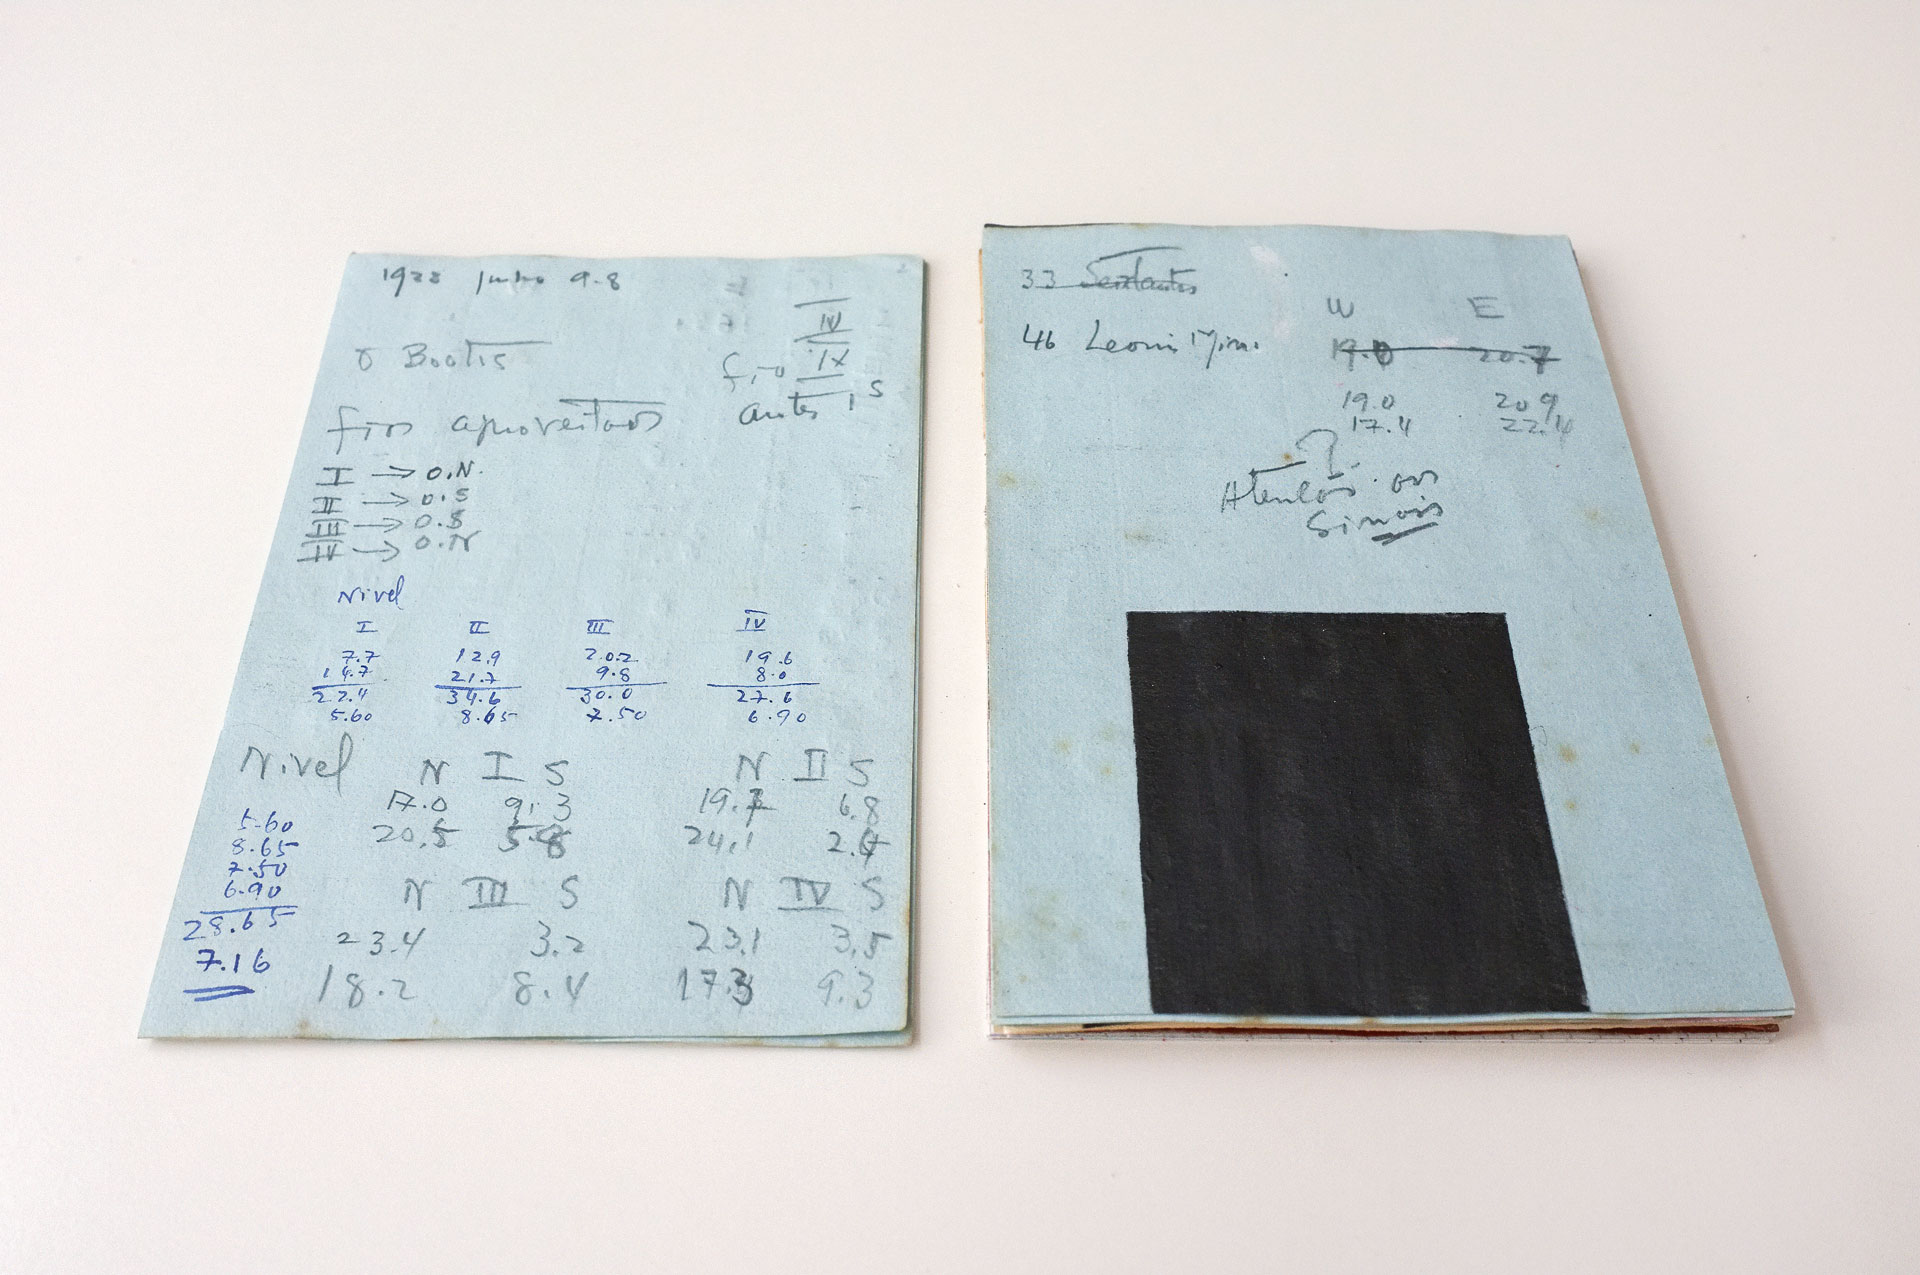 9.8
IV
Bootis
fio IX
antes 1 S
fios aproveitados
I → O.N.
II → O.S
III → O.S
IV → O.N
Nivel
I II III IV
7.7 12.9 20.2 19.6
14.7 21.7 9.8 8.0
22.4 34.6 30.0 27.6
5.60 8.65 7.50 6.90
Nivel N I S N II S
17.0 9.3 6.8
5.60
8.65 20.5 24.1
7.50
6.90 N III S N IV S
28.65 23.4 3.2 23.1 3.5
7.16 18.2 8.4 17.3 9.3
33 Sextantis
W E
46 Leonis Min.
20.7
19.0 20.9
17.4 22.4
?
Atenção aos
Sinais